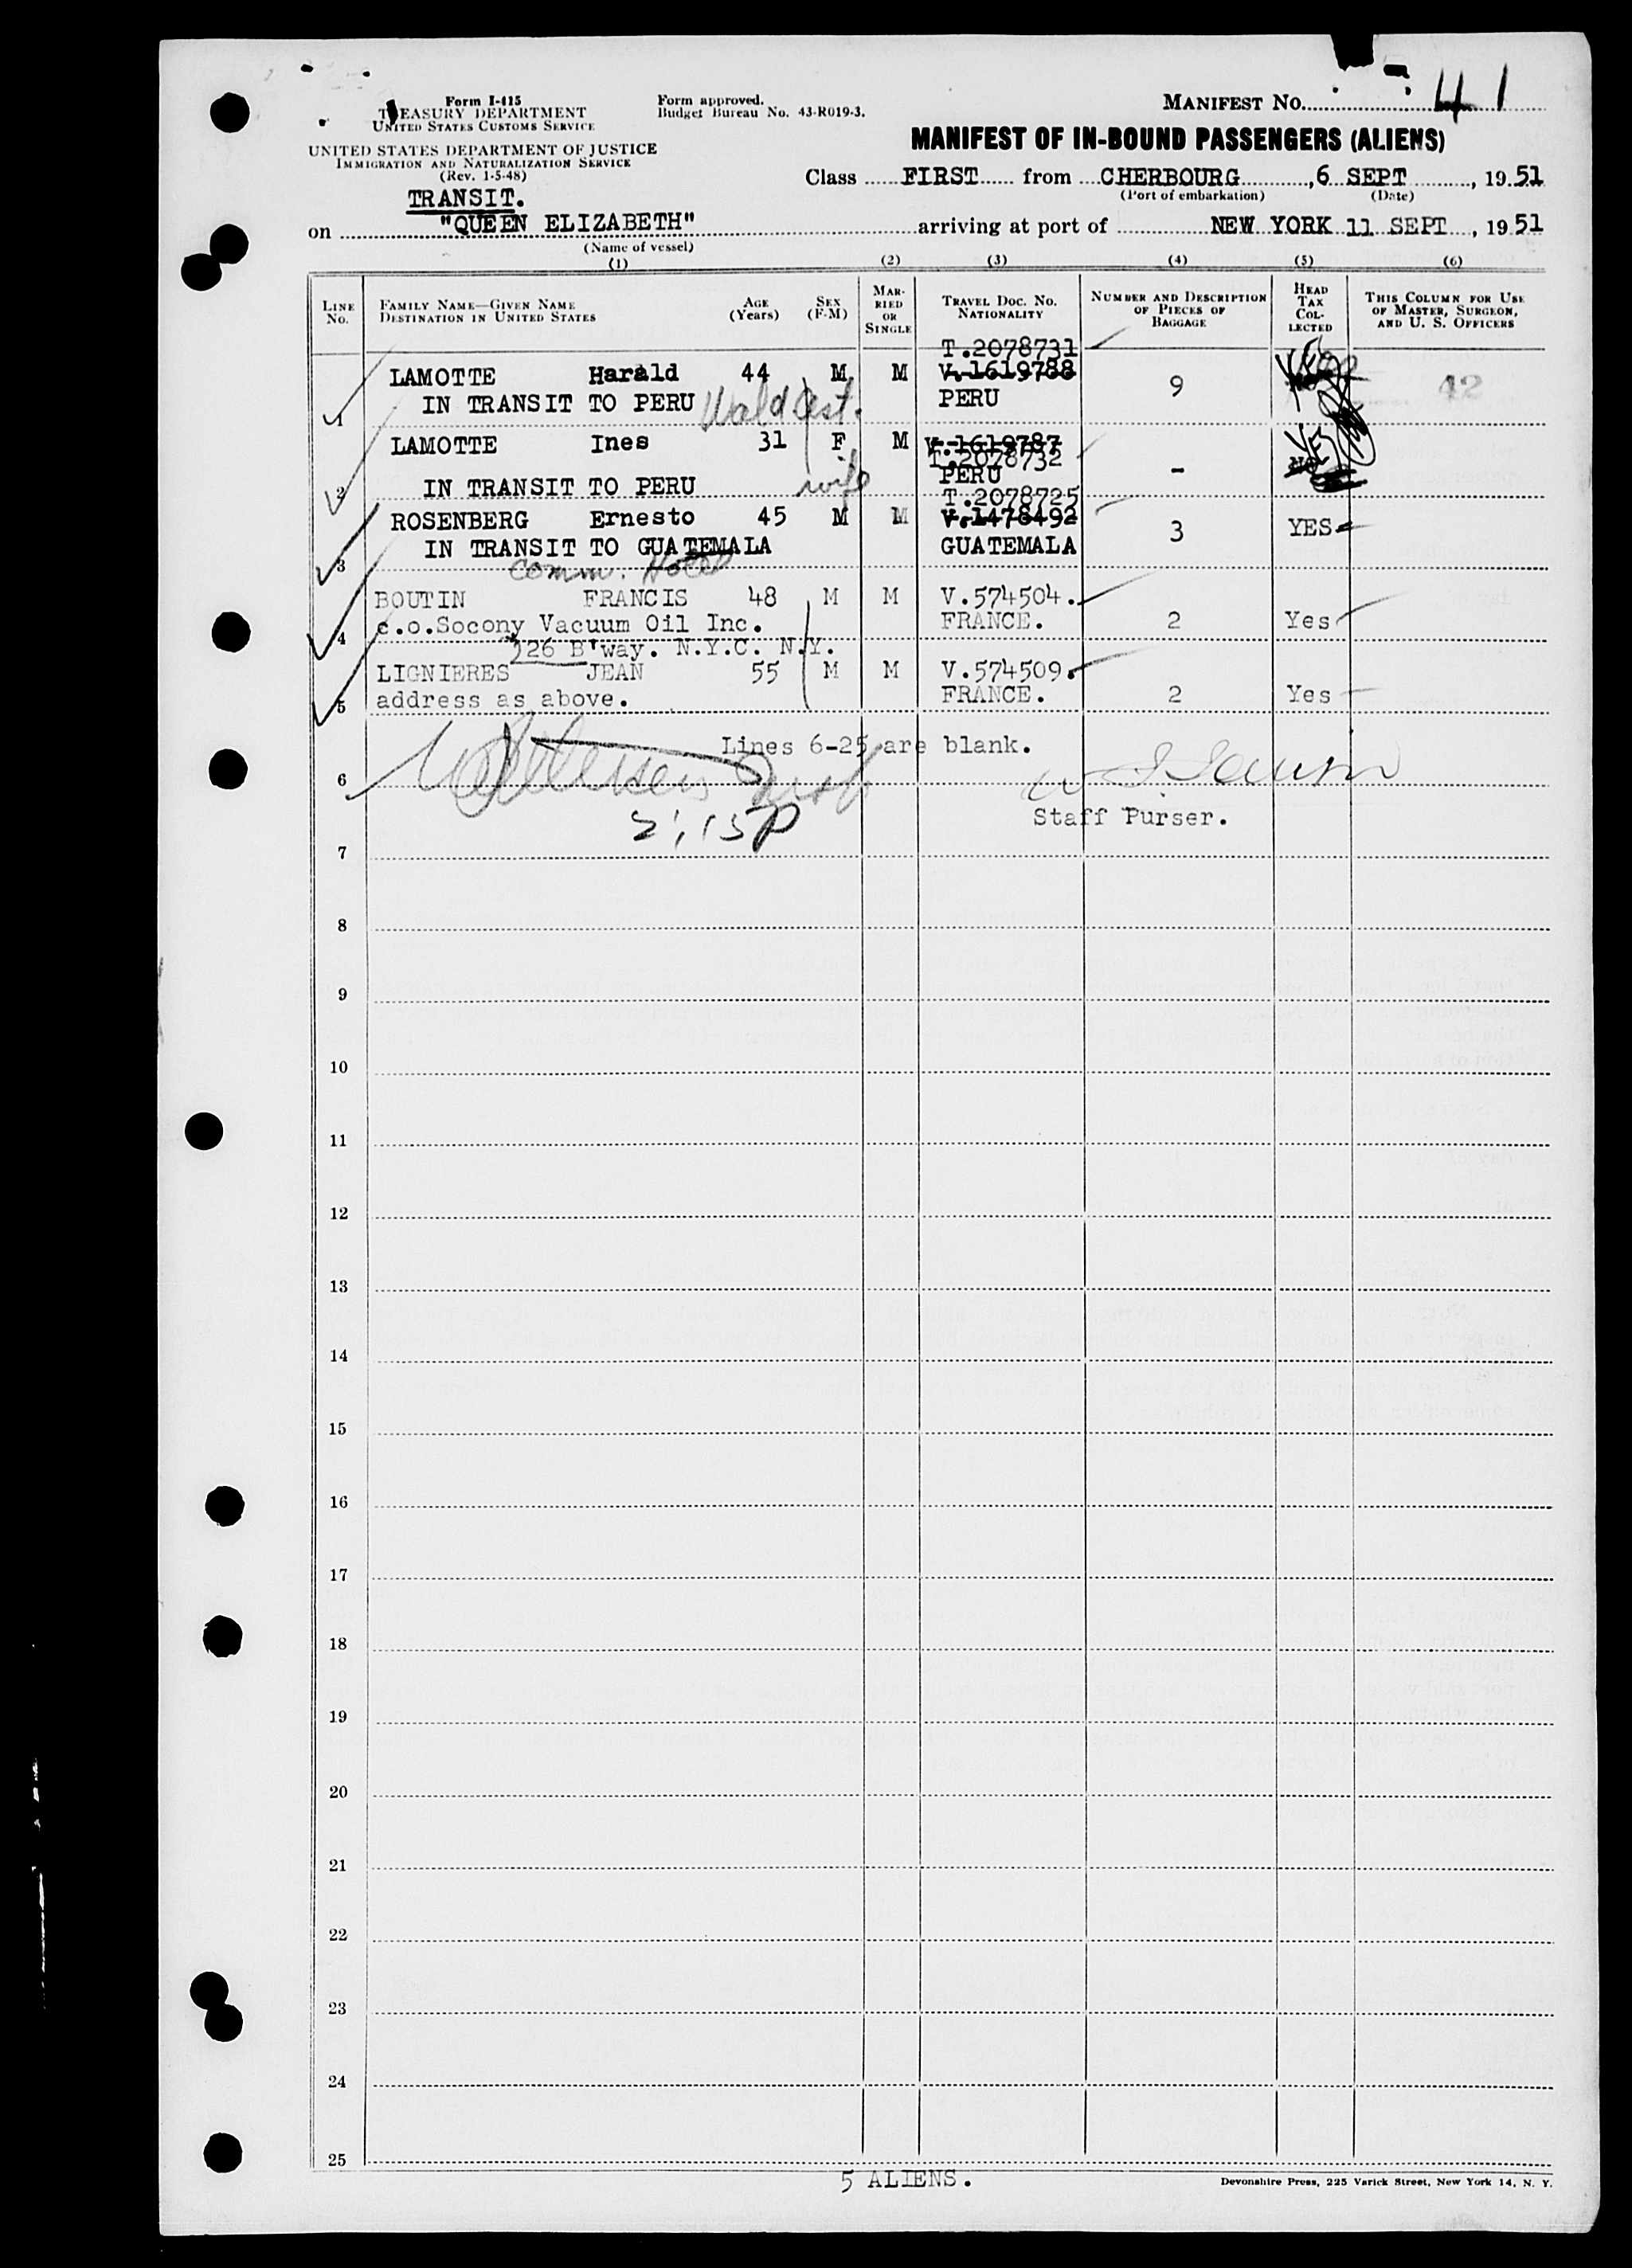 MANIFEST NO. 41
Form I-415
TREASURY DEPARTMENT
UNITED STATES CUSTOMS SERVICE
Form approved.
Budget Bureau No. 43-R019-3.
UNITED STATES DEPARTMENT OF JUSTICE
IMMIGRATION AND NATURALIZATION SERVICE
(Rev. 1-5-48)
MANIFEST OF IN-BOUND PASSENGERS (ALIENS)
Class FIRST from CHERBOURG, 6 SEPT, 1951
(Port of embarkation) (Date)
TRANSIT.
on "QUEEN ELIZABETH" arriving at port of NEW YORK 11 SEPT, 1951
(Name of vessel)
(1) (2) (3) (4) (5) (6)
LINE NO. FAMILY NAME—GIVEN NAME DESTINATION IN UNITED STATES AGE (Years) SEX (F-M) MARRIED OR SINGLE TRAVEL DOC. NO. NATIONALITY NUMBER AND DESCRIPTION OF PIECES OF BAGGAGE HEAD TAX COLLECTED THIS COLUMN FOR USE OF MASTER, SURGEON, AND U. S. OFFICERS
T.2078731
LAMOTTE Harald 44 M M V.1619788 9 YES 42
1 IN TRANSIT TO PERU Wald Ast. PERU
LAMOTTE Ines 31 F M V.1619787 YES
T.2078732 -
2 IN TRANSIT TO PERU wife PERU
T.2078725
ROSENBERG Ernesto 45 M M V.1478492 3 YES
IN TRANSIT TO GUATEMALA GUATEMALA
3 Comm. Hotel
BOUTIN FRANCIS 48 M M V.574504.
4 c.o.Socony Vacuum Oil Inc. FRANCE. 2 Yes
226 B'way. N.Y.C. N.Y.
LIGNIERES JEAN 55 M M V.574509.
5 address as above. FRANCE. 2 Yes
Lines 6-25 are blank.
6
2:15P Staff Purser.
7
8
9
10
11
12
13
14
15
16
17
18
19
20
21
22
23
24
25
5 ALIENS.
Devonshire Press, 225 Varick Street, New York 14, N. Y.